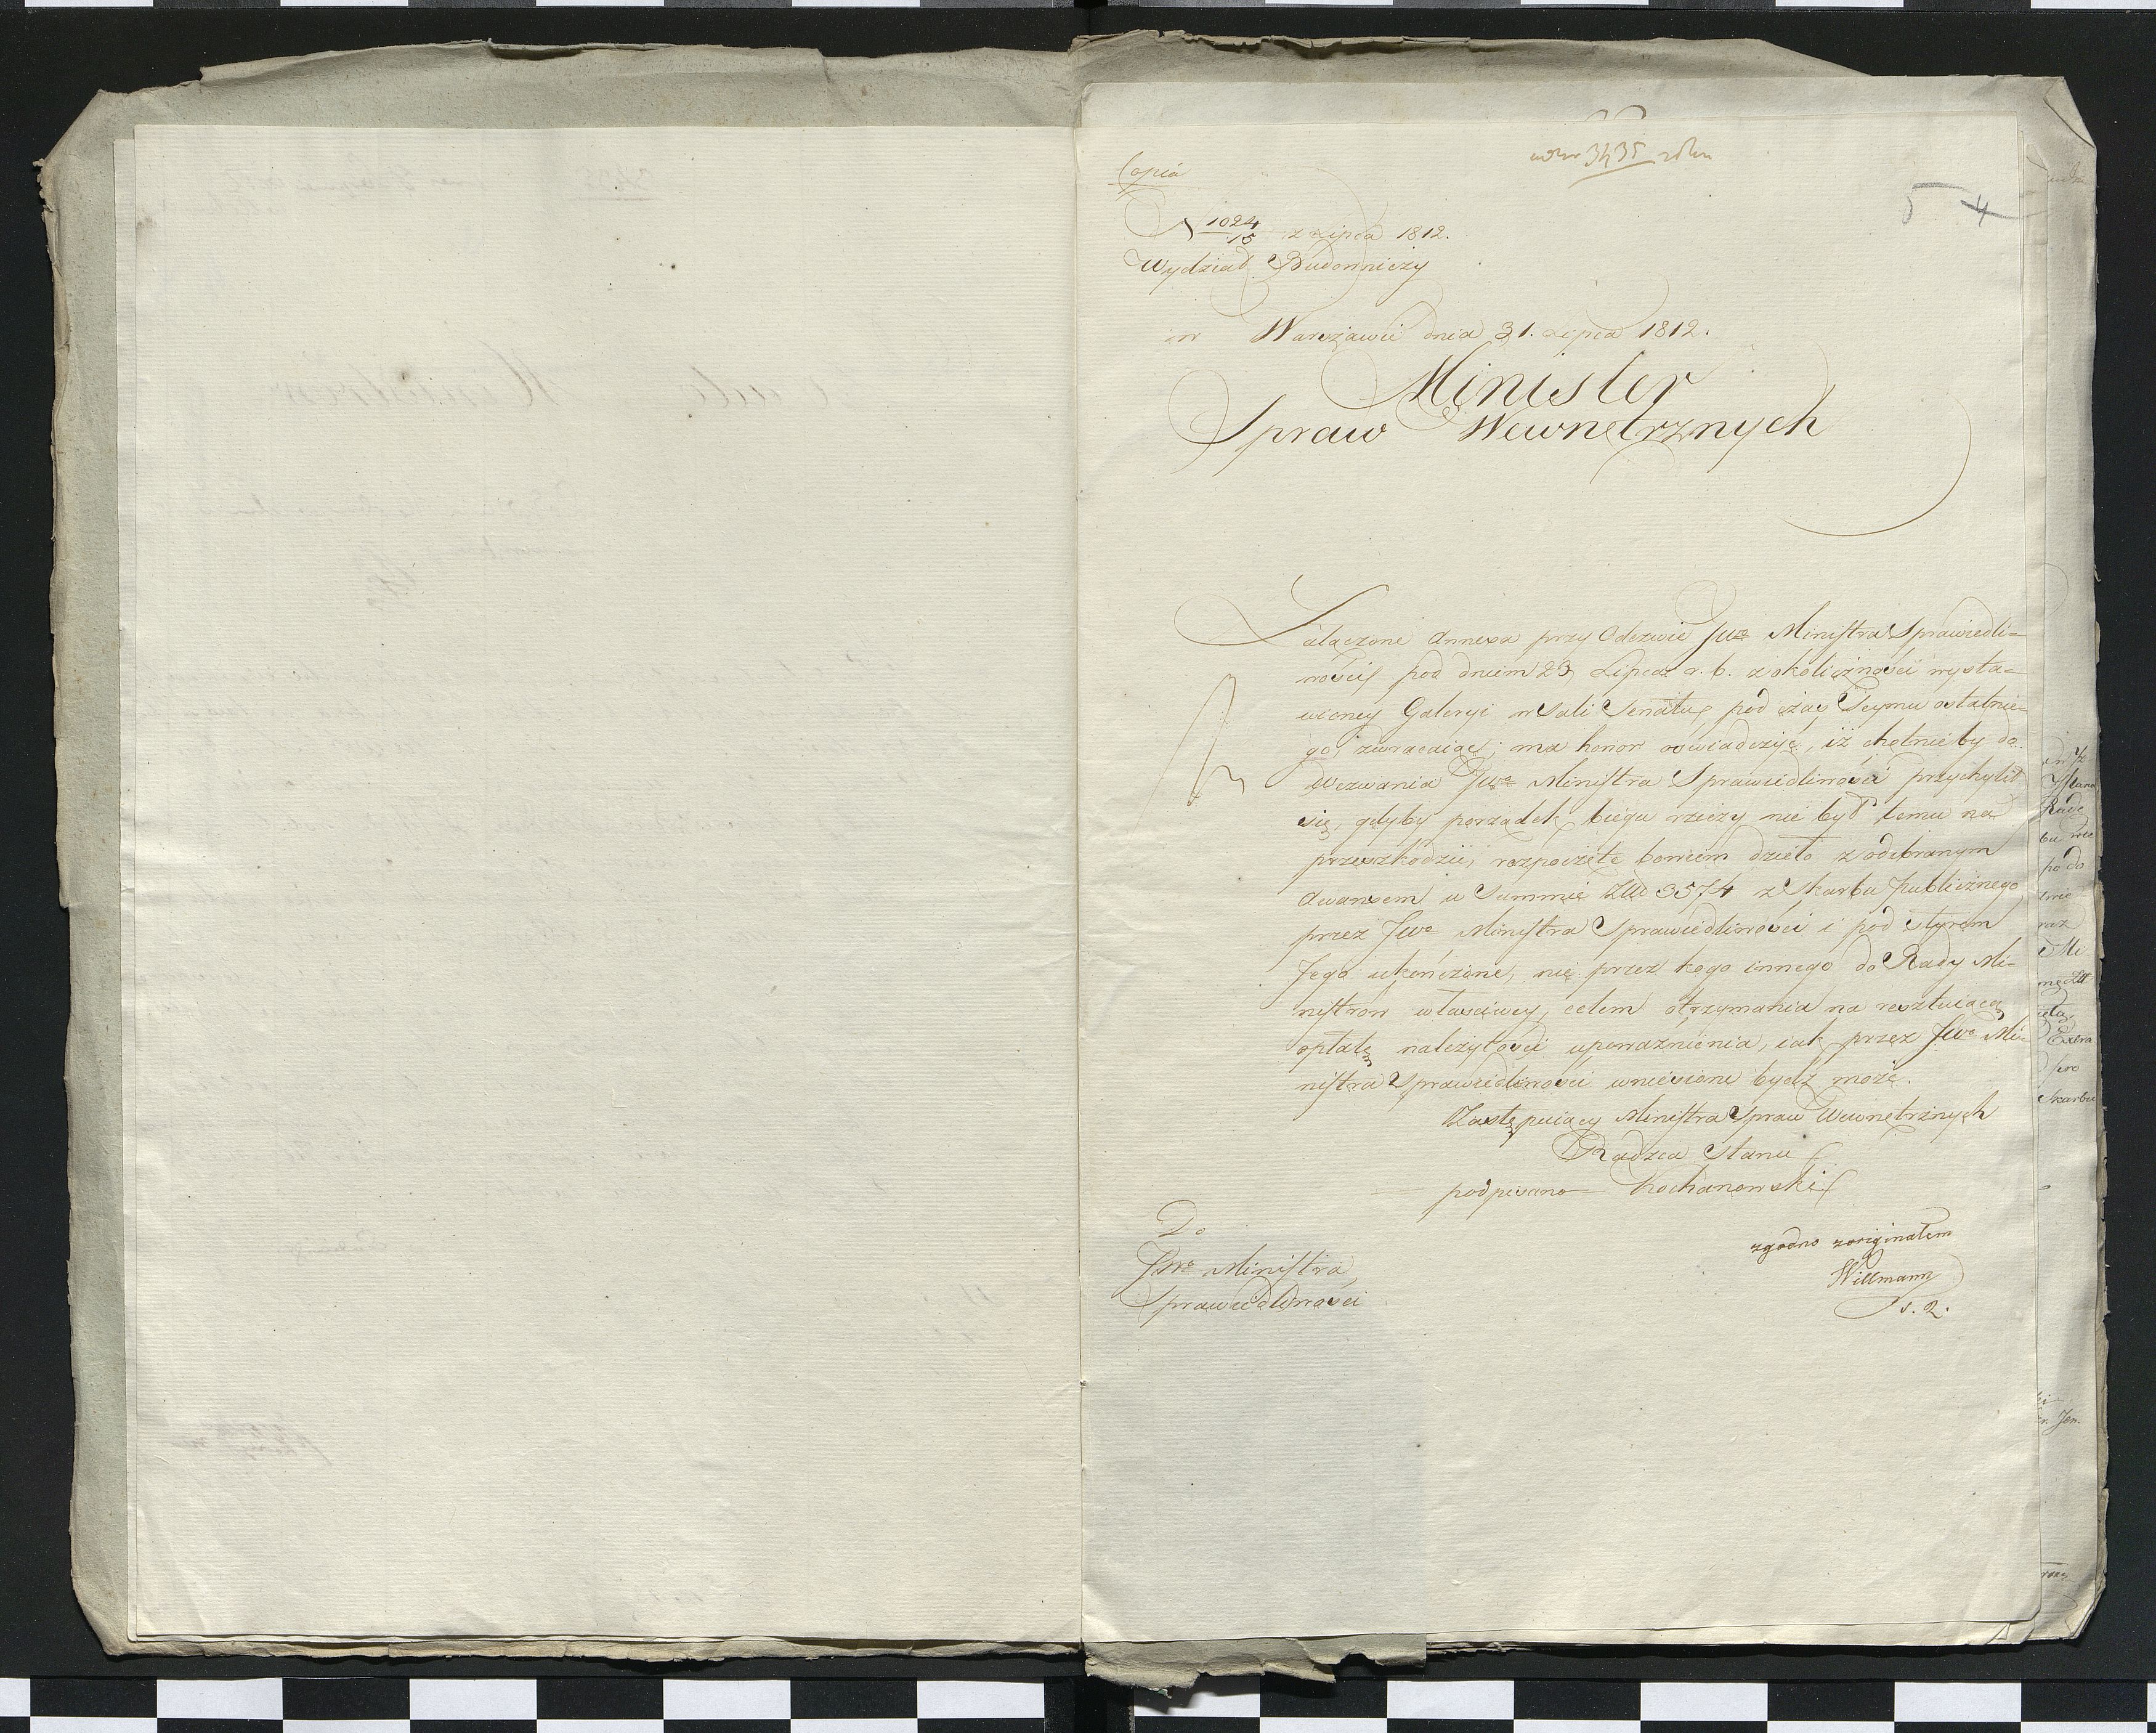 Copia
3435
5 4
N 1024/15 z Lipca 1812.
Wydział Budowniczy
w Warszawie dnia 31. Lipca 1812.
Minister
Spraw Wewnętrznych
Załączone Annexa przy Odezwie JWo Ministra Sprawiedli=
wości pod dniem 23 Lipca r. b. z okoliczności wysta=
wioney Galeryi w Sali Senatu, pod czas Seymu ostatnie=
go, zwracaiąc; ma honor oświadczyć, iż chętnie by do
Wezwania JWo Ministra Sprawiedliwości przychylił
się, gdyby porządek biegu rzeczy nie był temu na
przeszkodzie, rozpoczęte bowiem dzieło z odebranym
Awansem w Summie Złł 3574 z Skarbu Publicznego
przez JWo Ministra Sprawiedliwości i pod sterem
Jego ukończone, nie przez kogo innego do Rady Mi=
nistrow właściwey, celem otrzymania na resztuiącą
opłatę należytości upoważnienia, iak przez JWo Mi=
nistra Sprawiedliwości wniesione bydź może.
Zastępuiący Ministra Spraw Wewnętrznych
Radzca Stanu
podpisano Kochanowski
Do
JWo Ministra
Sprawiedliwości
zgodno z originałem
Willmann
S. 2.